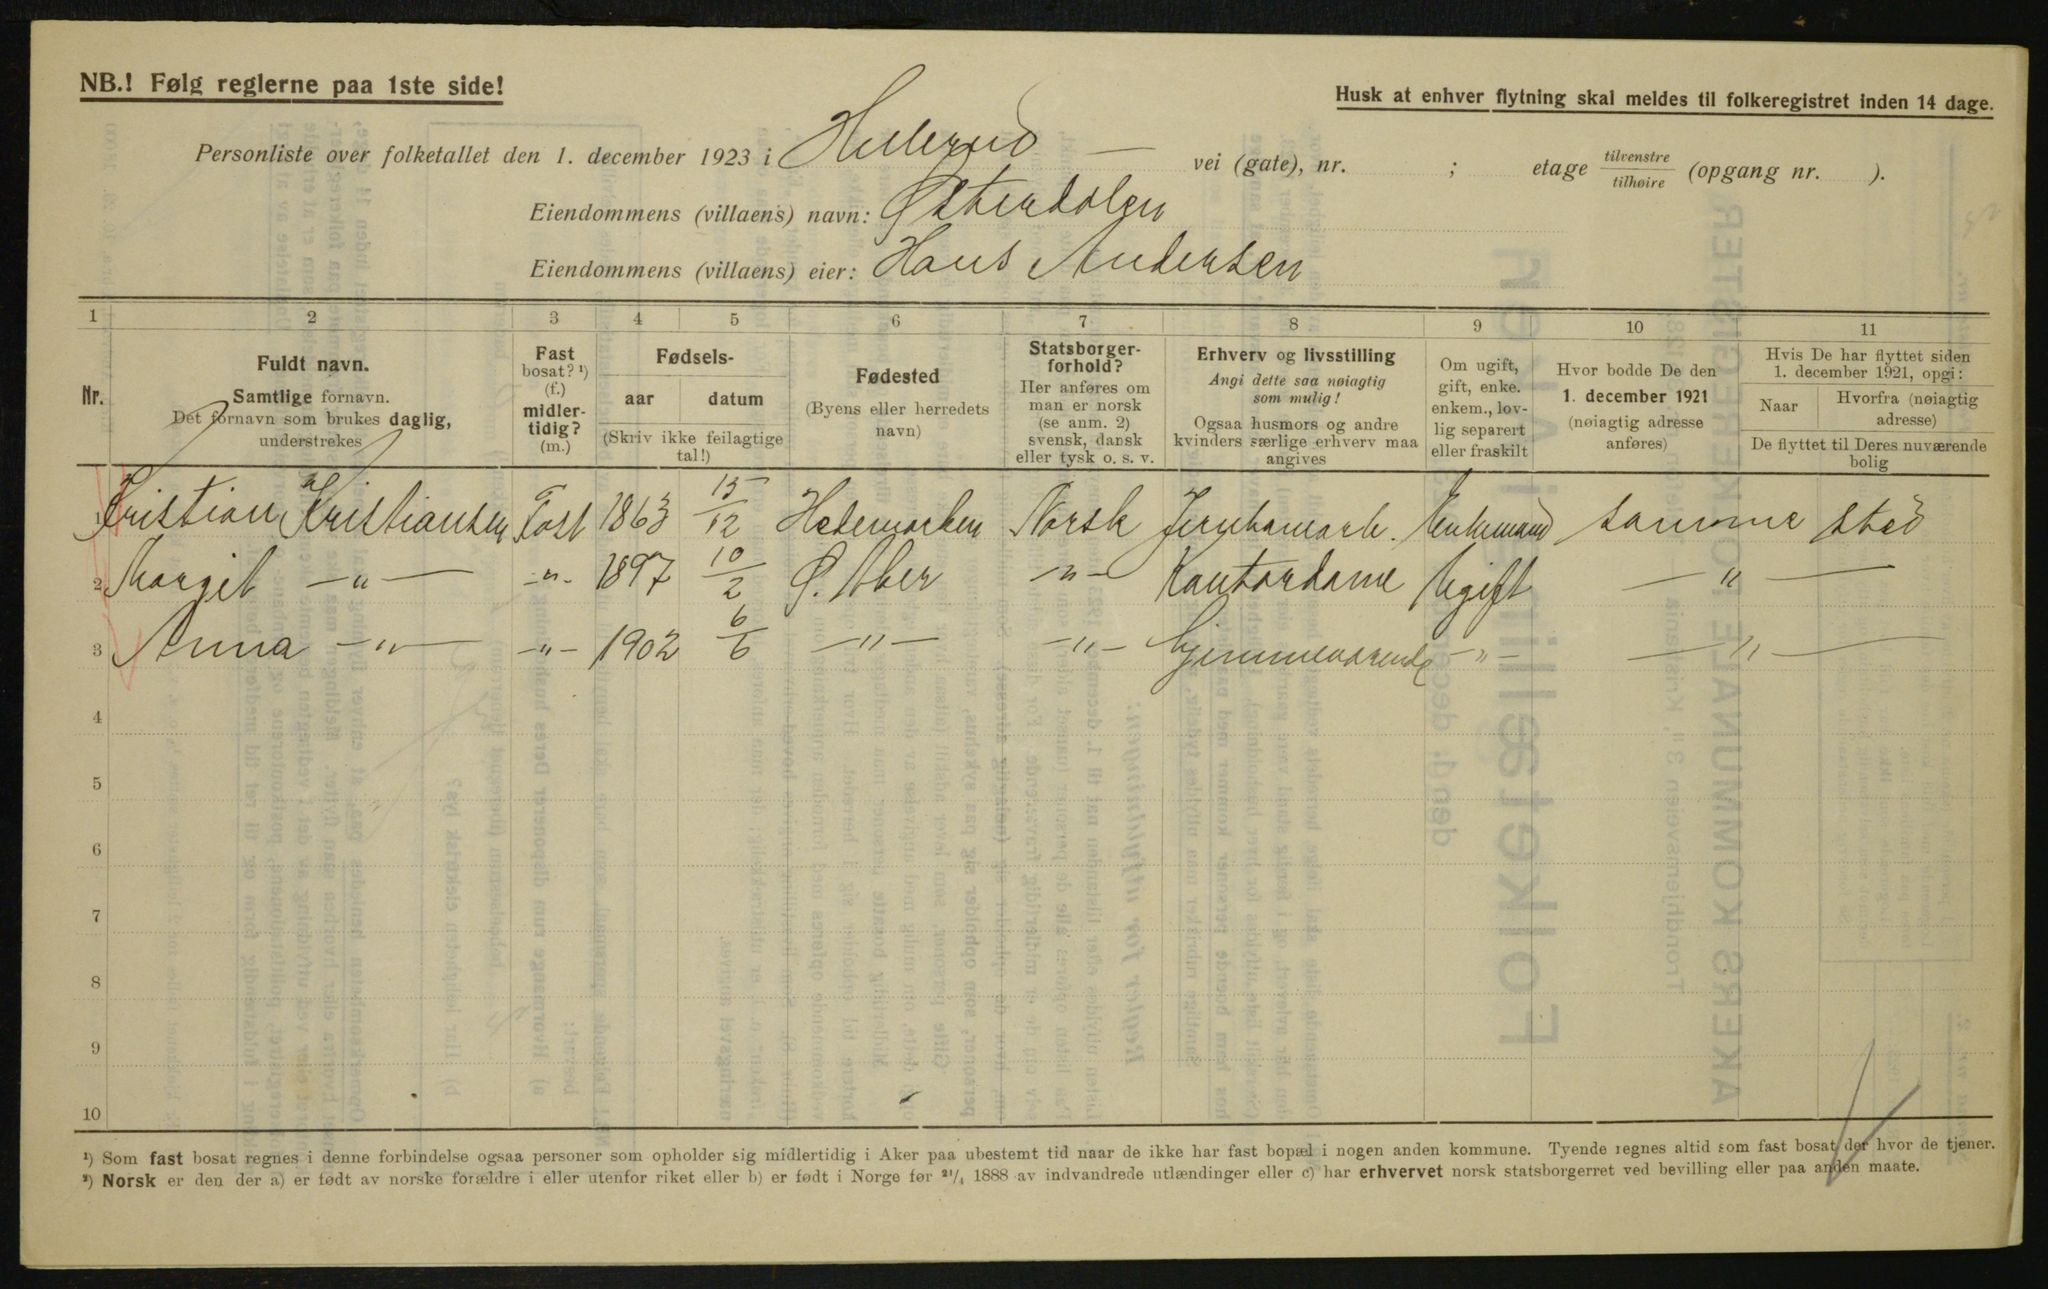 NB.! Følg reglerne paa 1ste side!
Husk at enhver flytning skal meldes til folkeregistret inden 14 dage.
Personliste over folketallet den 1. december 1923 i Hellerud — vei (gate), nr. ; etage tilvenstre/tilhøire (opgang nr. ).
Eiendommens (villaens) navn: Østerdalen
Eiendommens (villaens) eier: Hans Andersen
1 2 3 4 5 6 7 8 9 10 11
Nr.
Fuldt navn.
Samtlige fornavn.
Det fornavn som brukes daglig,
understrekes
Fast
bosat? ¹)
(f.)
midler-
tidig?
(m.)
Fødsels-
aar datum
(Skriv ikke feilagtige
tal!)
Fødested
(Byens eller herredets
navn)
Statsborger-
forhold?
Her anføres om
man er norsk
(se anm. 2)
svensk, dansk
eller tysk o. s. v.
Erhverv og livsstilling
Angi dette saa nøiagtig
som mulig!
Ogsaa husmors og andre
kvinders særlige erhverv maa
angives
Om ugift,
gift, enke.
enkem., lov-
lig separert
eller fraskilt
Hvor bodde De den
1. december 1921
(nøiagtig adresse
anføres)
Hvis De har flyttet siden
1. december 1921, opgi:
Naar Hvorfra (nøiagtig
adresse)
De flyttet til Deres nuværende
bolig
1 Kristian Kristiansen Fast 1863 15/12 Hedemarken Norsk Jernbanearb. Enkemand samme sted
2 Margit —"— —"— 1897 10/2 Ø. Aker —"— Kontordame Ugift —"—
3 Anna —"— —"— 1902 6/6 —"— —"— Hjemmeværende —"— —"—
4
5
6
7
8
9
10
¹) Som fast bosat regnes i denne forbindelse ogsaa personer som opholder sig midlertidig i Aker paa ubestemt tid naar de ikke har fast bopæl i nogen anden kommune. Tyende regnes altid som fast bosat der hvor de tjener.
²) Norsk er den der a) er født av norske forældre i eller utenfor riket eller b) er født i Norge før 21/4 1888 av indvandrede utlændinger eller c) har erhvervet norsk statsborgerret ved bevilling eller paa anden maate.